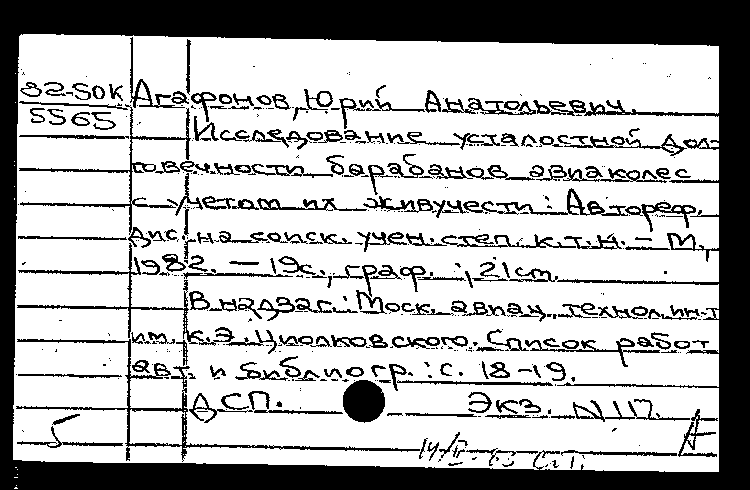 32-50К Агафонов, Юрий Анатольевич.
5565
Исследование усталостной дол-
говечности барабанов авиаколес
с учетом их живучести : Автореф.
дис. на соиск. учен. степ. к.т.н. - М.,
1982. - 19с., граф. ; 21см.
В надзаг.: Моск. авиац. технол. ин-т
им. К.Э. Циолковского. Список работ
авт. и библиогр.: с. 18-19.
ДСП. Экз. N 117.
5 А